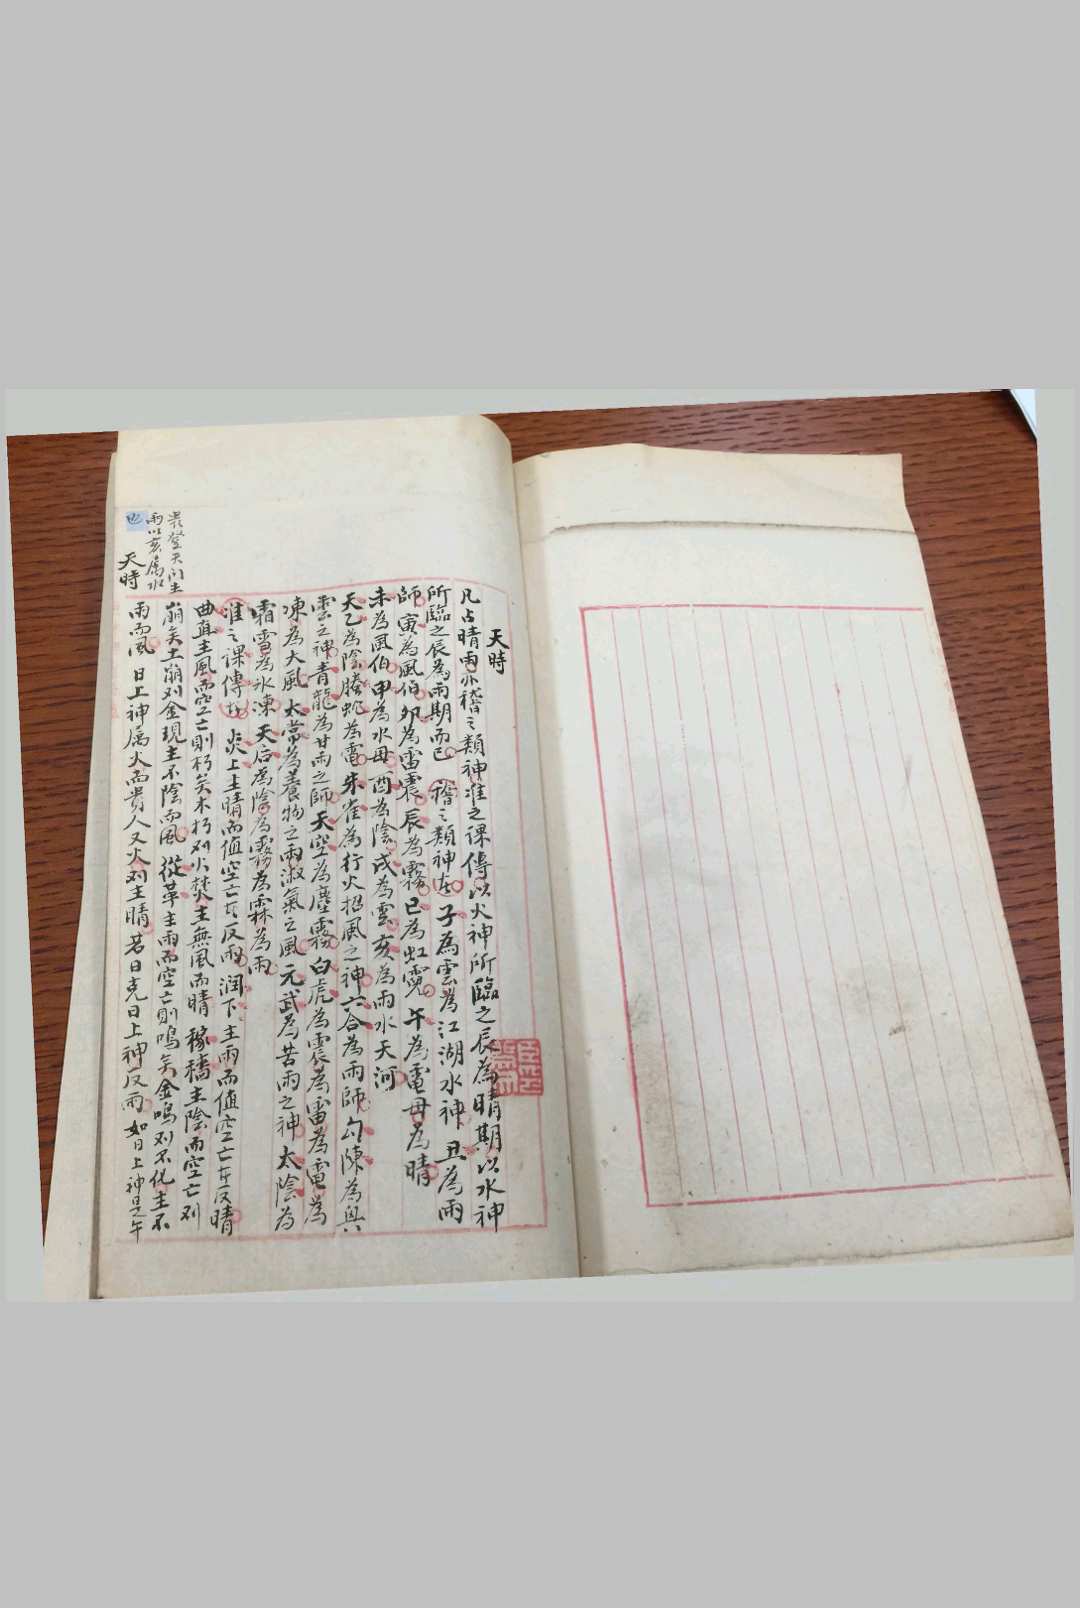 天時
凡占晴雨亦稽之類神准之課傳以火神所臨之辰為晴期以水神
所臨之辰為雨期而已 稽之類神者 子為雲為江湖水神 丑為雨
師 寅為風伯 卯為雷震 辰為霧 巳為虹霓 午為電母為晴
未為風伯 申為水母 酉為陰 戌為雲 亥為雨水天河
天乙為陰 螣蛇為電 朱雀為行火招風之神 六合為雨師 勾陳為興
雲之神 青龍為甘雨之師 天空為塵霧 白虎為震為雷為電為
凍為大風 太常為養物之雨淑氣之風 元武為苦雨之神 太陰為
霜雪為氷凍 天后為陰為霧為霖為雨
准之課傳者 炎上主晴而值空亡者反雨 潤下主雨而值空亡者反晴
曲直主風而空亡則朽矣木朽則火焚主無風而晴 稼穡主陰而空亡則
崩矣土崩則金現主不陰而風 從革主雨而空亡則鳴矣金鳴則不化主不
雨而風 日上神属火而貴人又火則主晴若日克日上神反雨如日上神是午
天時
登天门主
雨以亥属水
也